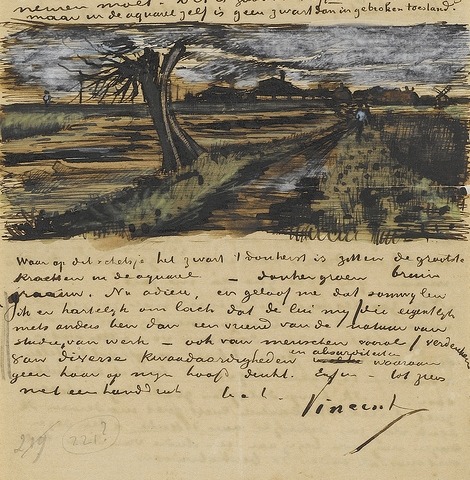 nemen moet. Dit is
maar in de aquarel zelf is geen zwart dan in gebroken toestand.
Waar op dit schetsje het zwart 't donkerst is zitten de grootste
krachten in de aquarel — donkergroen bruin
graauw. Nu adieu, en geloof me dat somwylen
ik er hartelyk om lach dat de lui my (die eigentlyk
niets anders ben dan een vriend van de natuur van
studie van werk — ook van menschen vooral) verdenken
van diverse kwaadaardigheden en absurditeiten waaraan
geen haar op myn hoofd denkt. Enfin tot ziens
met een handdruk t. à t. Vincent
221?